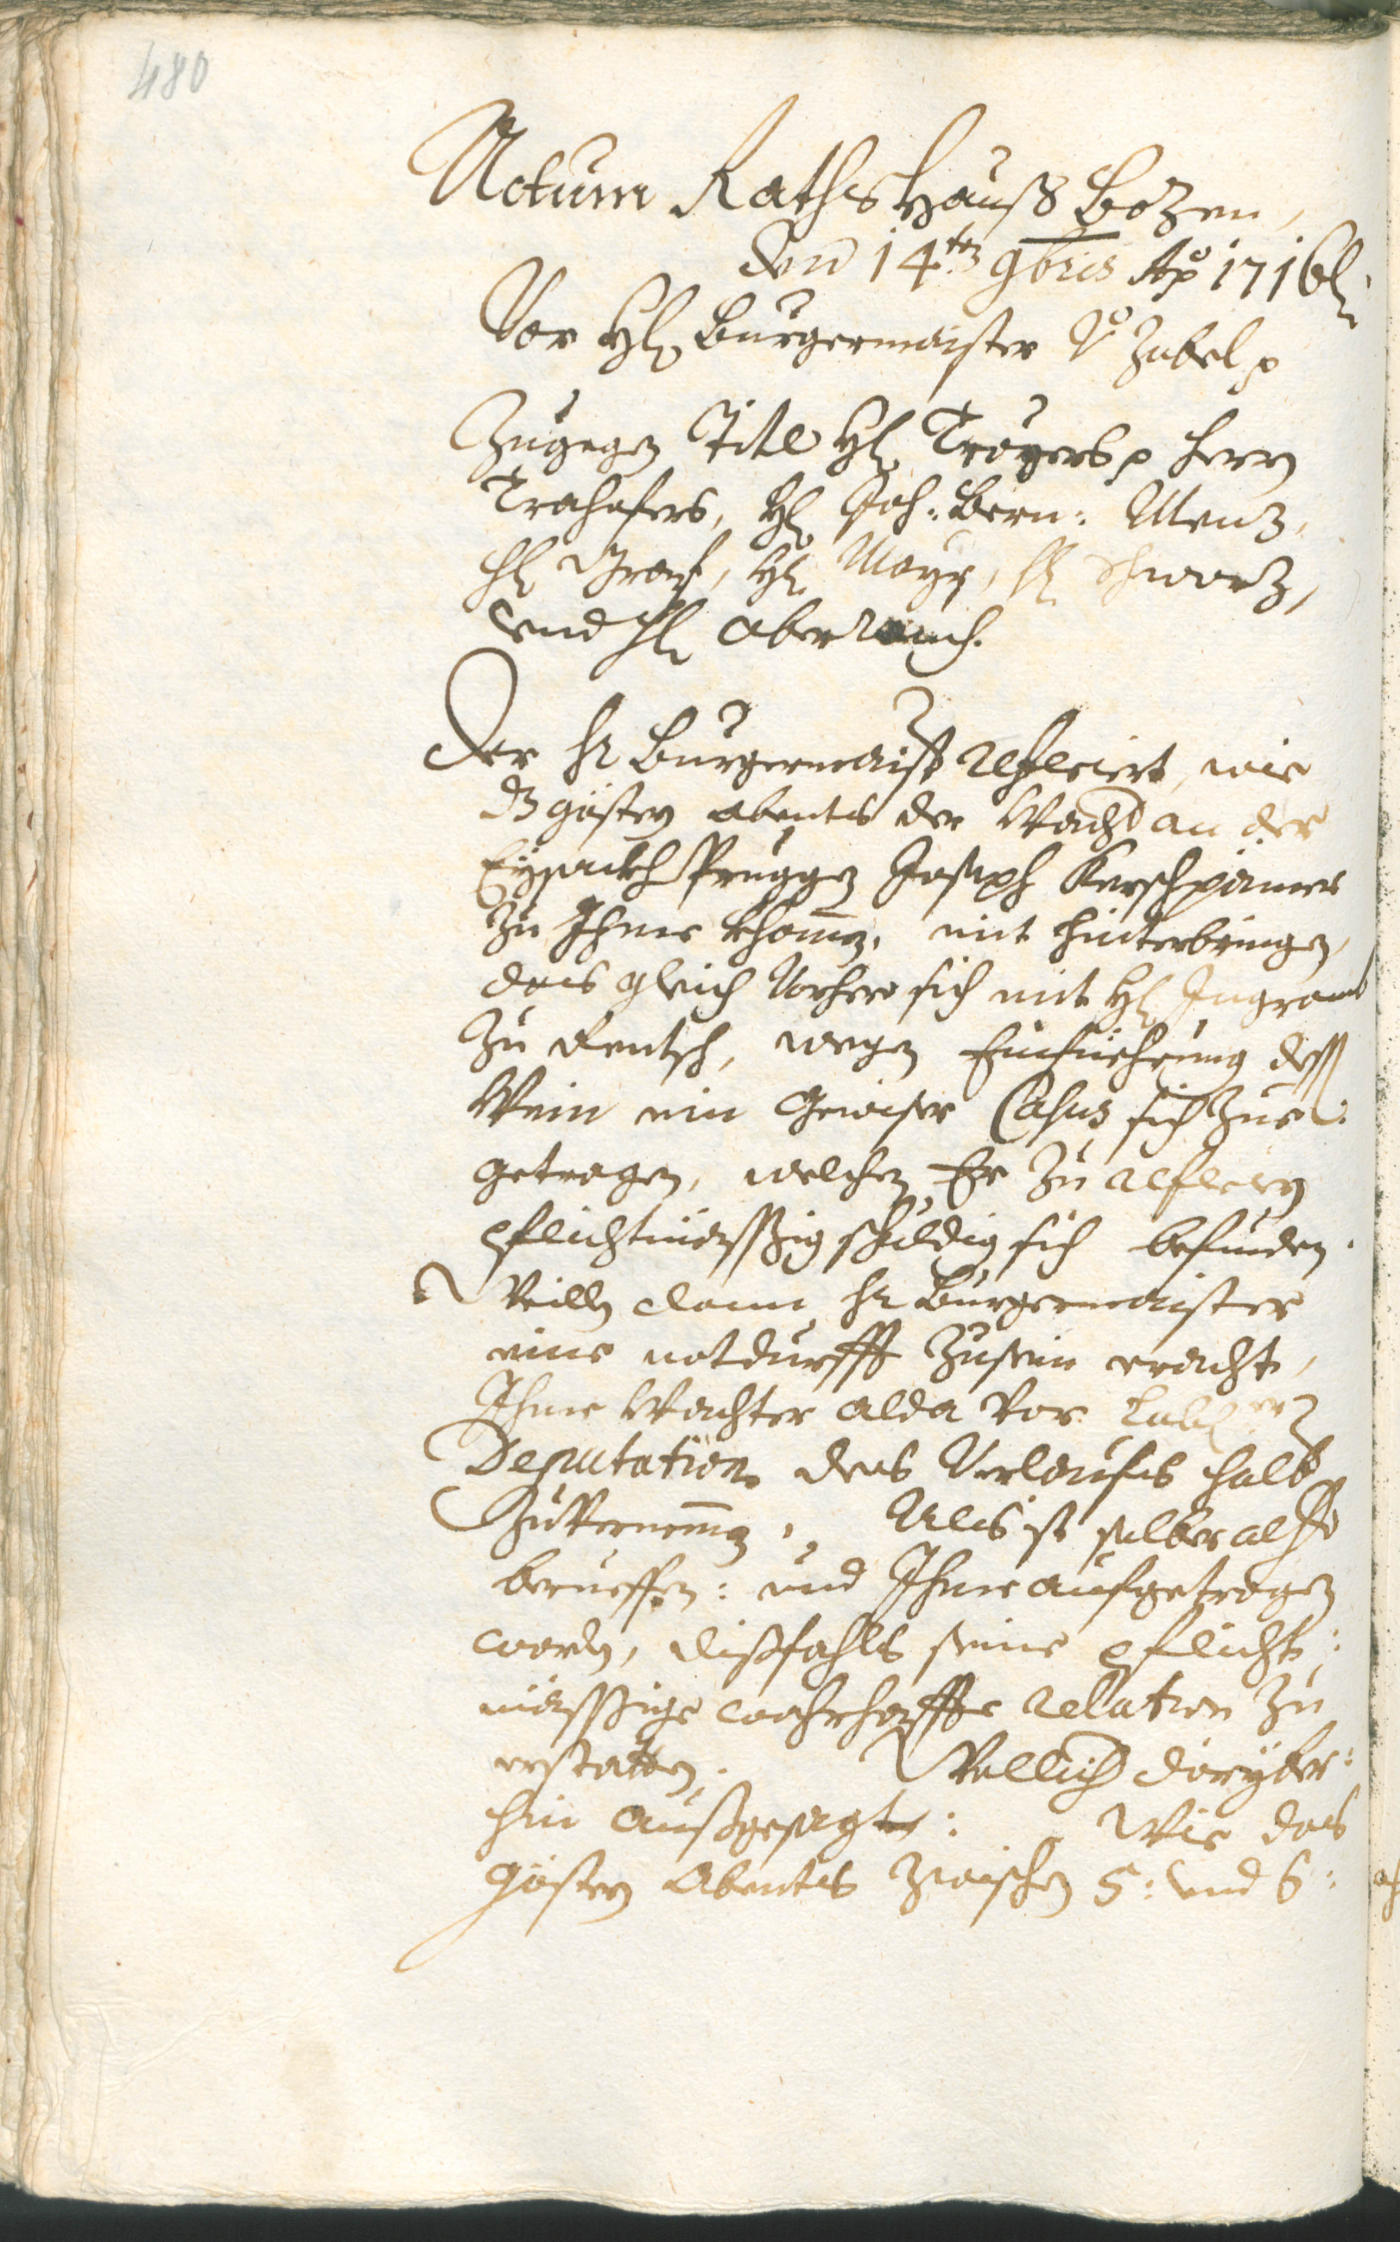 480
Actum Rathshauß Bozen,
den 14ten 9bris Aō 1716
Vor H: Burgermaister Zabel p
Zugegen Titl H: Troyers p Herrn
H: Joh: Bern: Menz,
H: Graf, H: Mayr, H: Schwarz,
und H: Oberrauch.
Der Hr Burgermaister referiert, wie
dz gösten abents der Wacht an der
Eysackh Pruggen Joseph Kerschpämer
zu Ihme khomen, mit hinterbringen,
das gleich Vorhero sich mit H: Ingram
zu Rentsch, wegen Einfüehrung deß
Wein ein gewiser Casus sich zue:
getragen, welchen Er zu referiern
pflichtmässig schuldig sich befunden.
Weillen dann Hr Burgermaister
eine notdurfft zusein erachte,
Ihme Wachter alda vor Labl:
Deputation des Verlaufs halb
zuvernemen, Als ist selber also
berueffen: und Ihme aufgetragen
worden, dißfahls seine pflicht:
mässige wahrhaffte relation zu
erstatten. Wellich darüber:
hin außgesagt: Wie das
gösten Abents zwischen 5: und 6: